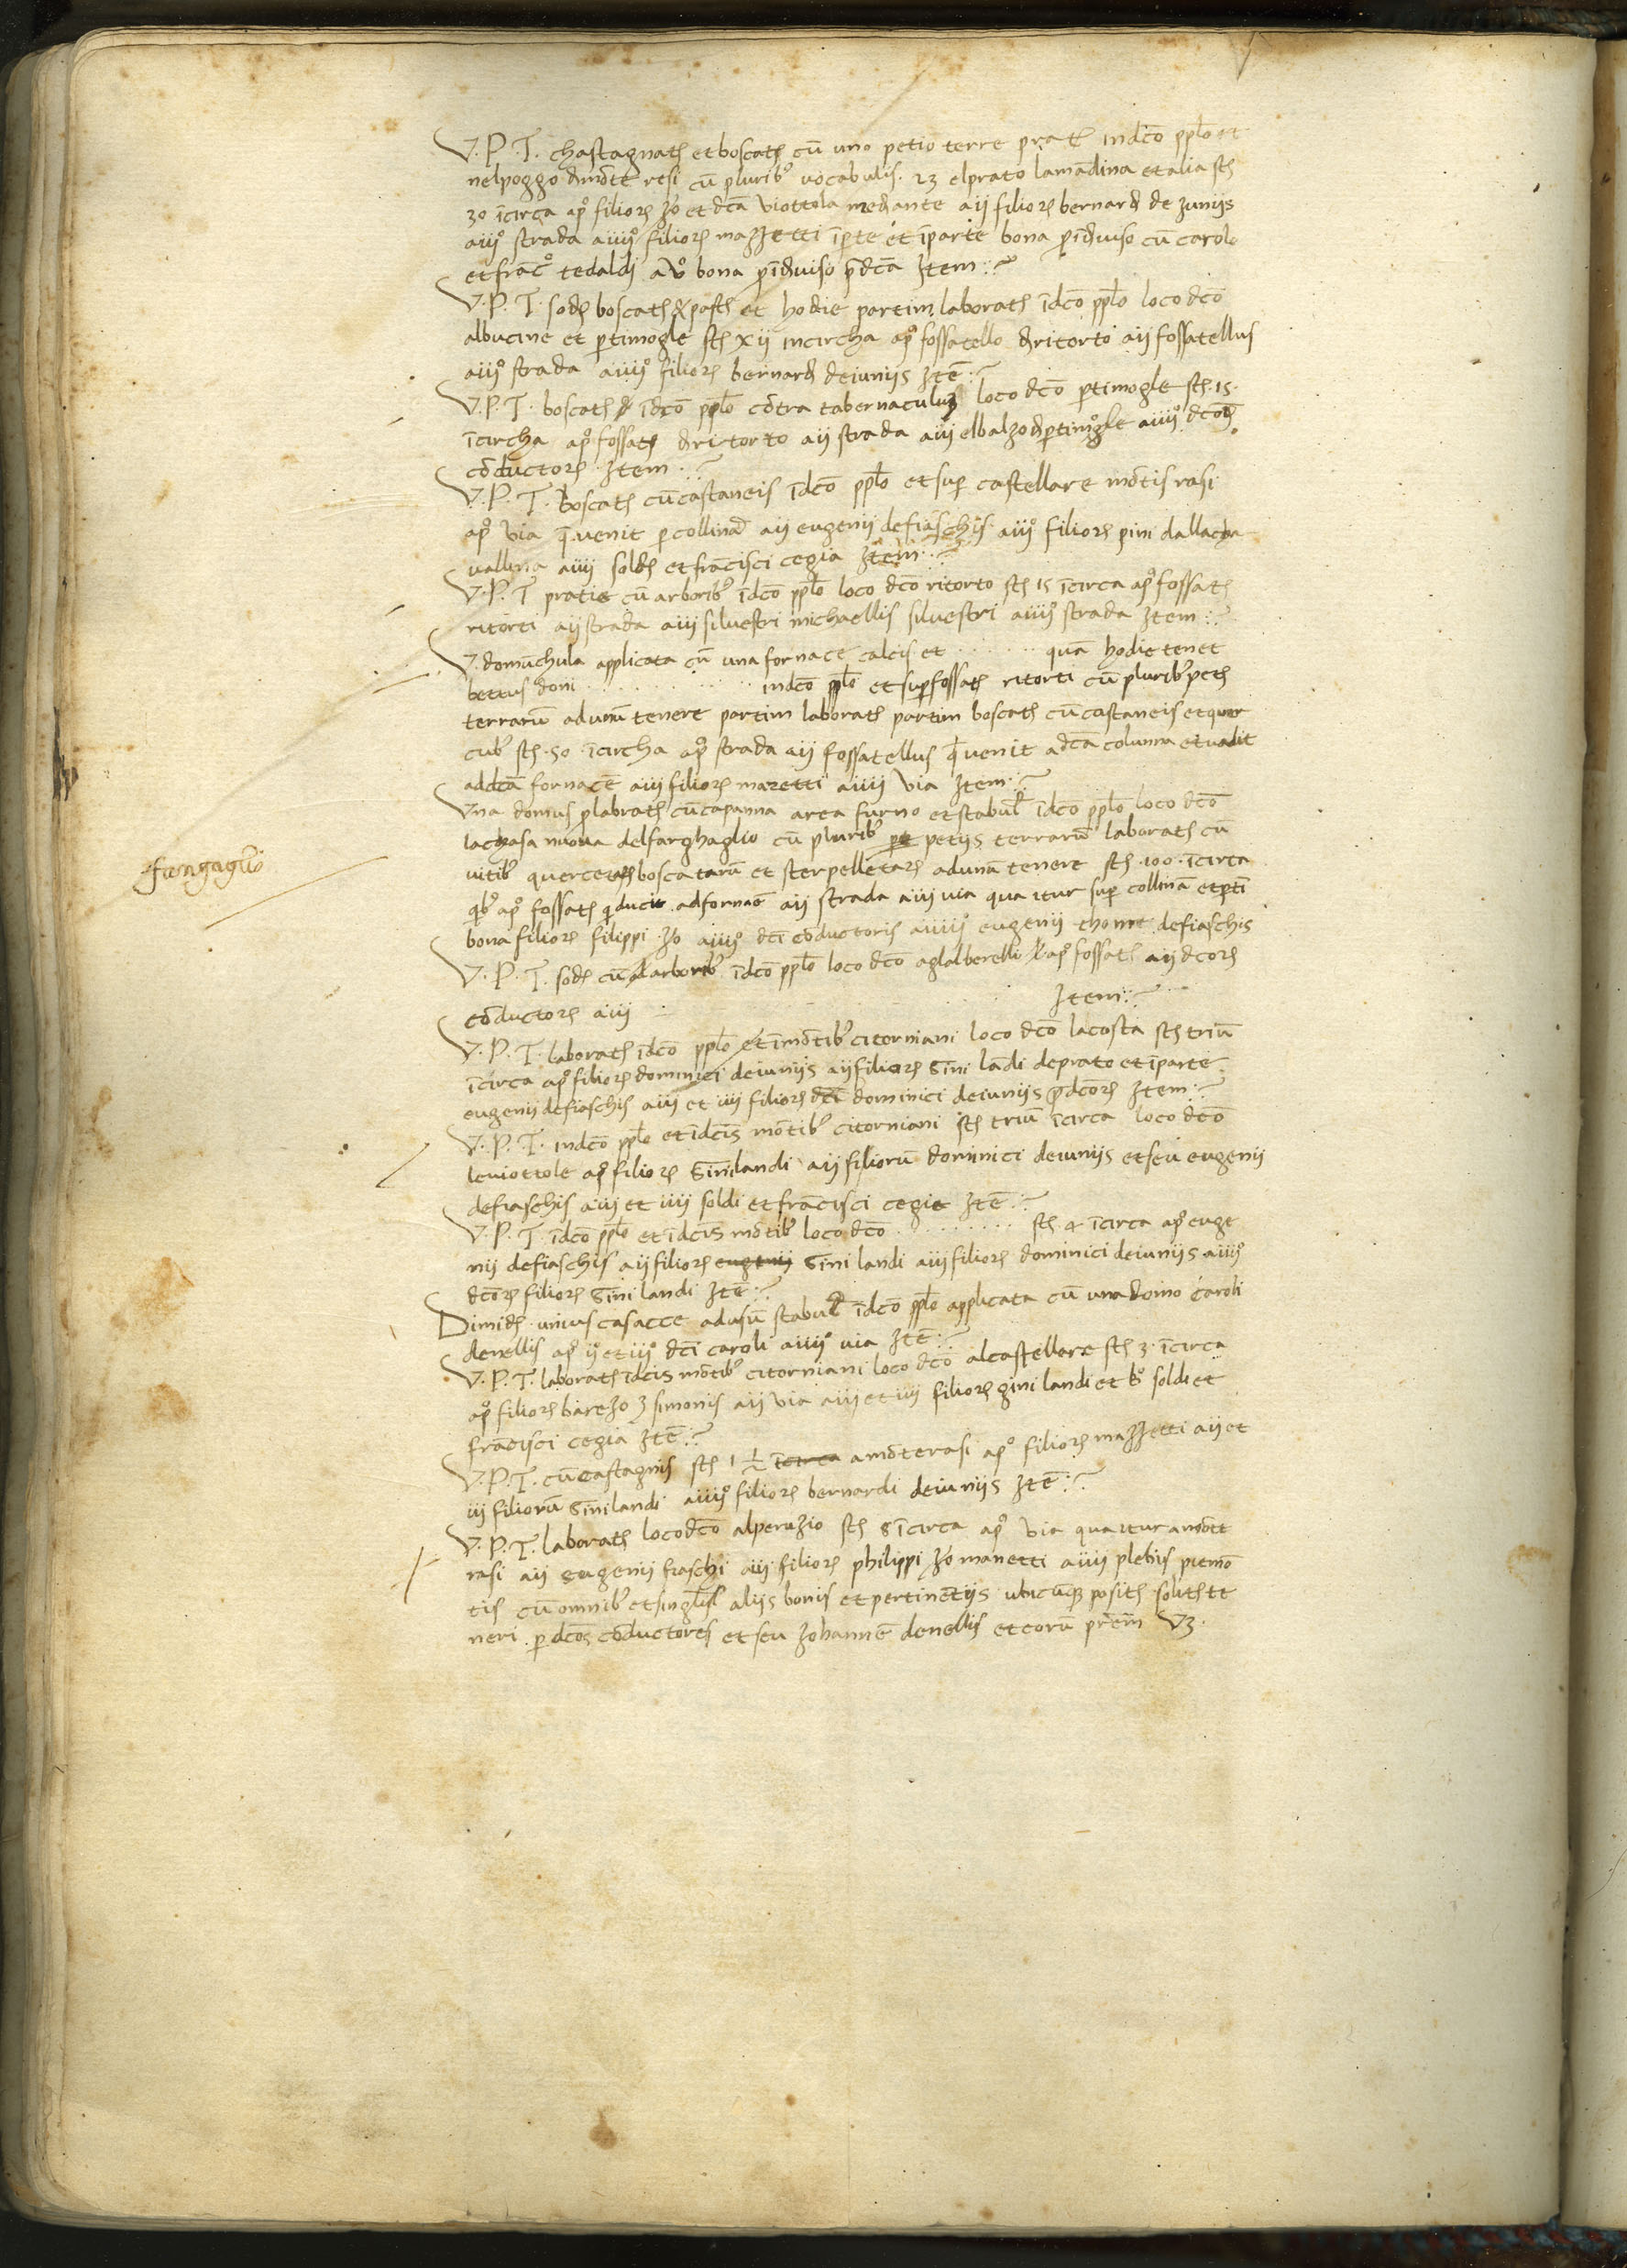 V. P. T. chastagnatj et boscatj cū uno petio terre pratį indc̄o pplo et
nelpoggo dmōte resi cū pluribꝰ vocabulis. 23 elprato lamādina et alia stj
30 īcirca apº filiorꝝ Jº et dcā viottola mediante aij filiorꝝ bernardj de Juniis
aiijº strada aiiijº filiorꝝ mazzetti īpte et īparte bona pīdiviso cū carolo
et francº tedaldj avº bona pīdiviso p̄dcā Item
V. P. T. sodj boscatj & pastj et hodie partim laboratj īdcō pplo loco dcō
albucine et ptimogle stj xij incircha apº fossatello dritorto aij fossatellus
aiijº strada aiiijº filiorꝝ bernardj deiuniis Itē
V. P. T. boscatj īdcō pplo cōtra tabernaculuȝ loco dcō ptimogle stj 15.
īcircha apº fossatj dritorto aij strada aiij elbalzo dptimogle aiiijº dcoꝝ
cōductorꝝ Item
V. P. T. boscatj cū castaneis īdcō pplo et sup castellare mōtis rasi
apº via q̄ venit p collinā aij eugenij defiaschis aiijº filiorꝝ pini dallacha
vallina aiiij soldj et frācisci cegia Item
V. P. T pratie cū arboribꝰ īdcō pplo loco dcō ritorto stj 15 īcirca apº fossatj
ritorti aij strada aiij silvestri michaellis silvestri aiiijº strada Item
V. domūchula applicata cū una fornace calcis et . . . . . . . quā hodie tenet
bettus doni . . . . . . . . . . . indcō pplo et sup fossatj ritorti cū pluribꝰ petj
terrarū adunū tenere partim laboratj partim boscatj cū castaneis et quer
cubꝰ stj. 50 īcircha apº strada aij fossatellus q̄ venit adcā columna et vadit
addcā fornacē aiij filiorꝝ mazetti aiiij via Item
Una domus p labratj cū capanna area furno et stabulo īdcō pplo loco dcō
lachasa nuova delfarghaglio cū pluribꝰ pet petiis terrarū laboratj cū
vitibꝰ quercetarꝝ boscatarū et sterpelletarꝝ adunā tenere stj. 100. īcirca
qbꝰ apº fossatj q ducit adfornacē aij strada aiij via qua itur sup collinā et ptī
bona filiorꝝ filippi Jº aiiijº dcī cōductoris aiiiijº eugenij thome defiaschis
V. P. T. sodj cū arboribꝰ īdcō pplo loco dcō aglalberelli apº fossatj aij dcorꝝ
cōductorꝝ aiij . . . . . Item
V. P. T. laboratj īdcō pplo et īmōtibꝰ citorniani loco dcō lacosta stj triū
īcirca apº filiorꝝ dominici deiuniis aij filiorꝝ Sīni lādi deprato et īparte
eugenij defiaschis aiij et iiij filiorꝝ dcī dominici deiuniis p̄dcorꝝ Item
V. P. T. indcō pplo et īdcīs mōtibꝰ citorniani stj triū īcirca loco dcō
leviottole apº filiorꝝ Sīni landi aij filiorū dominici deiuniis et seu eugenij
defiaschis aiij et iiij soldi et frācisci cegie Itē
V. P. T. īdcō pplo et īdcīs mōtibꝰ loco dcō . . . . . . . . stj 4 īcirca apº euge
nij defiaschis aij filiorꝝ eugenij Sīni landi aiij filiorꝝ dominici deiuniis aiiijº
dcorꝝ filiorꝝ Sīni landi Itē
Dimidj. unius casacce adusū stabuli īdcō pplo applicata cū una domo caroli
denellis apº ijº et iijº dcī caroli aiiijº via Itē
V. P. T. laboratj īdcīs mōtibꝰ citorniani loco dcō alcastellare stj 3. īcirca
apº filiorꝝ simonis aij via aiij et iiij filiorꝝ gini landi et vº soldi et
frācisci cegia Itē
V. P. T. cū castagnis stj 1 1/2 īcirca amōterasi apº filiorꝝ mazzetti aij et
iij filiorū Sīni landi aiiijº filiorꝝ bernardi deiuniis Itē
V. P. T. laboratj loco dcō alperuzio stj 8 īcirca apº via qua itur amōte
rasi aij eugenij fiaschi aiij filiorꝝ philippi Jº manetti aiiij plebis piemō
tis cū omnibꝰ et singlīs aliis bonis et pertinētiis ubicūqꝫ positj solitj te
neri p dcos cōductores et seu Johannē denellis et eorū prēm Vȝ.